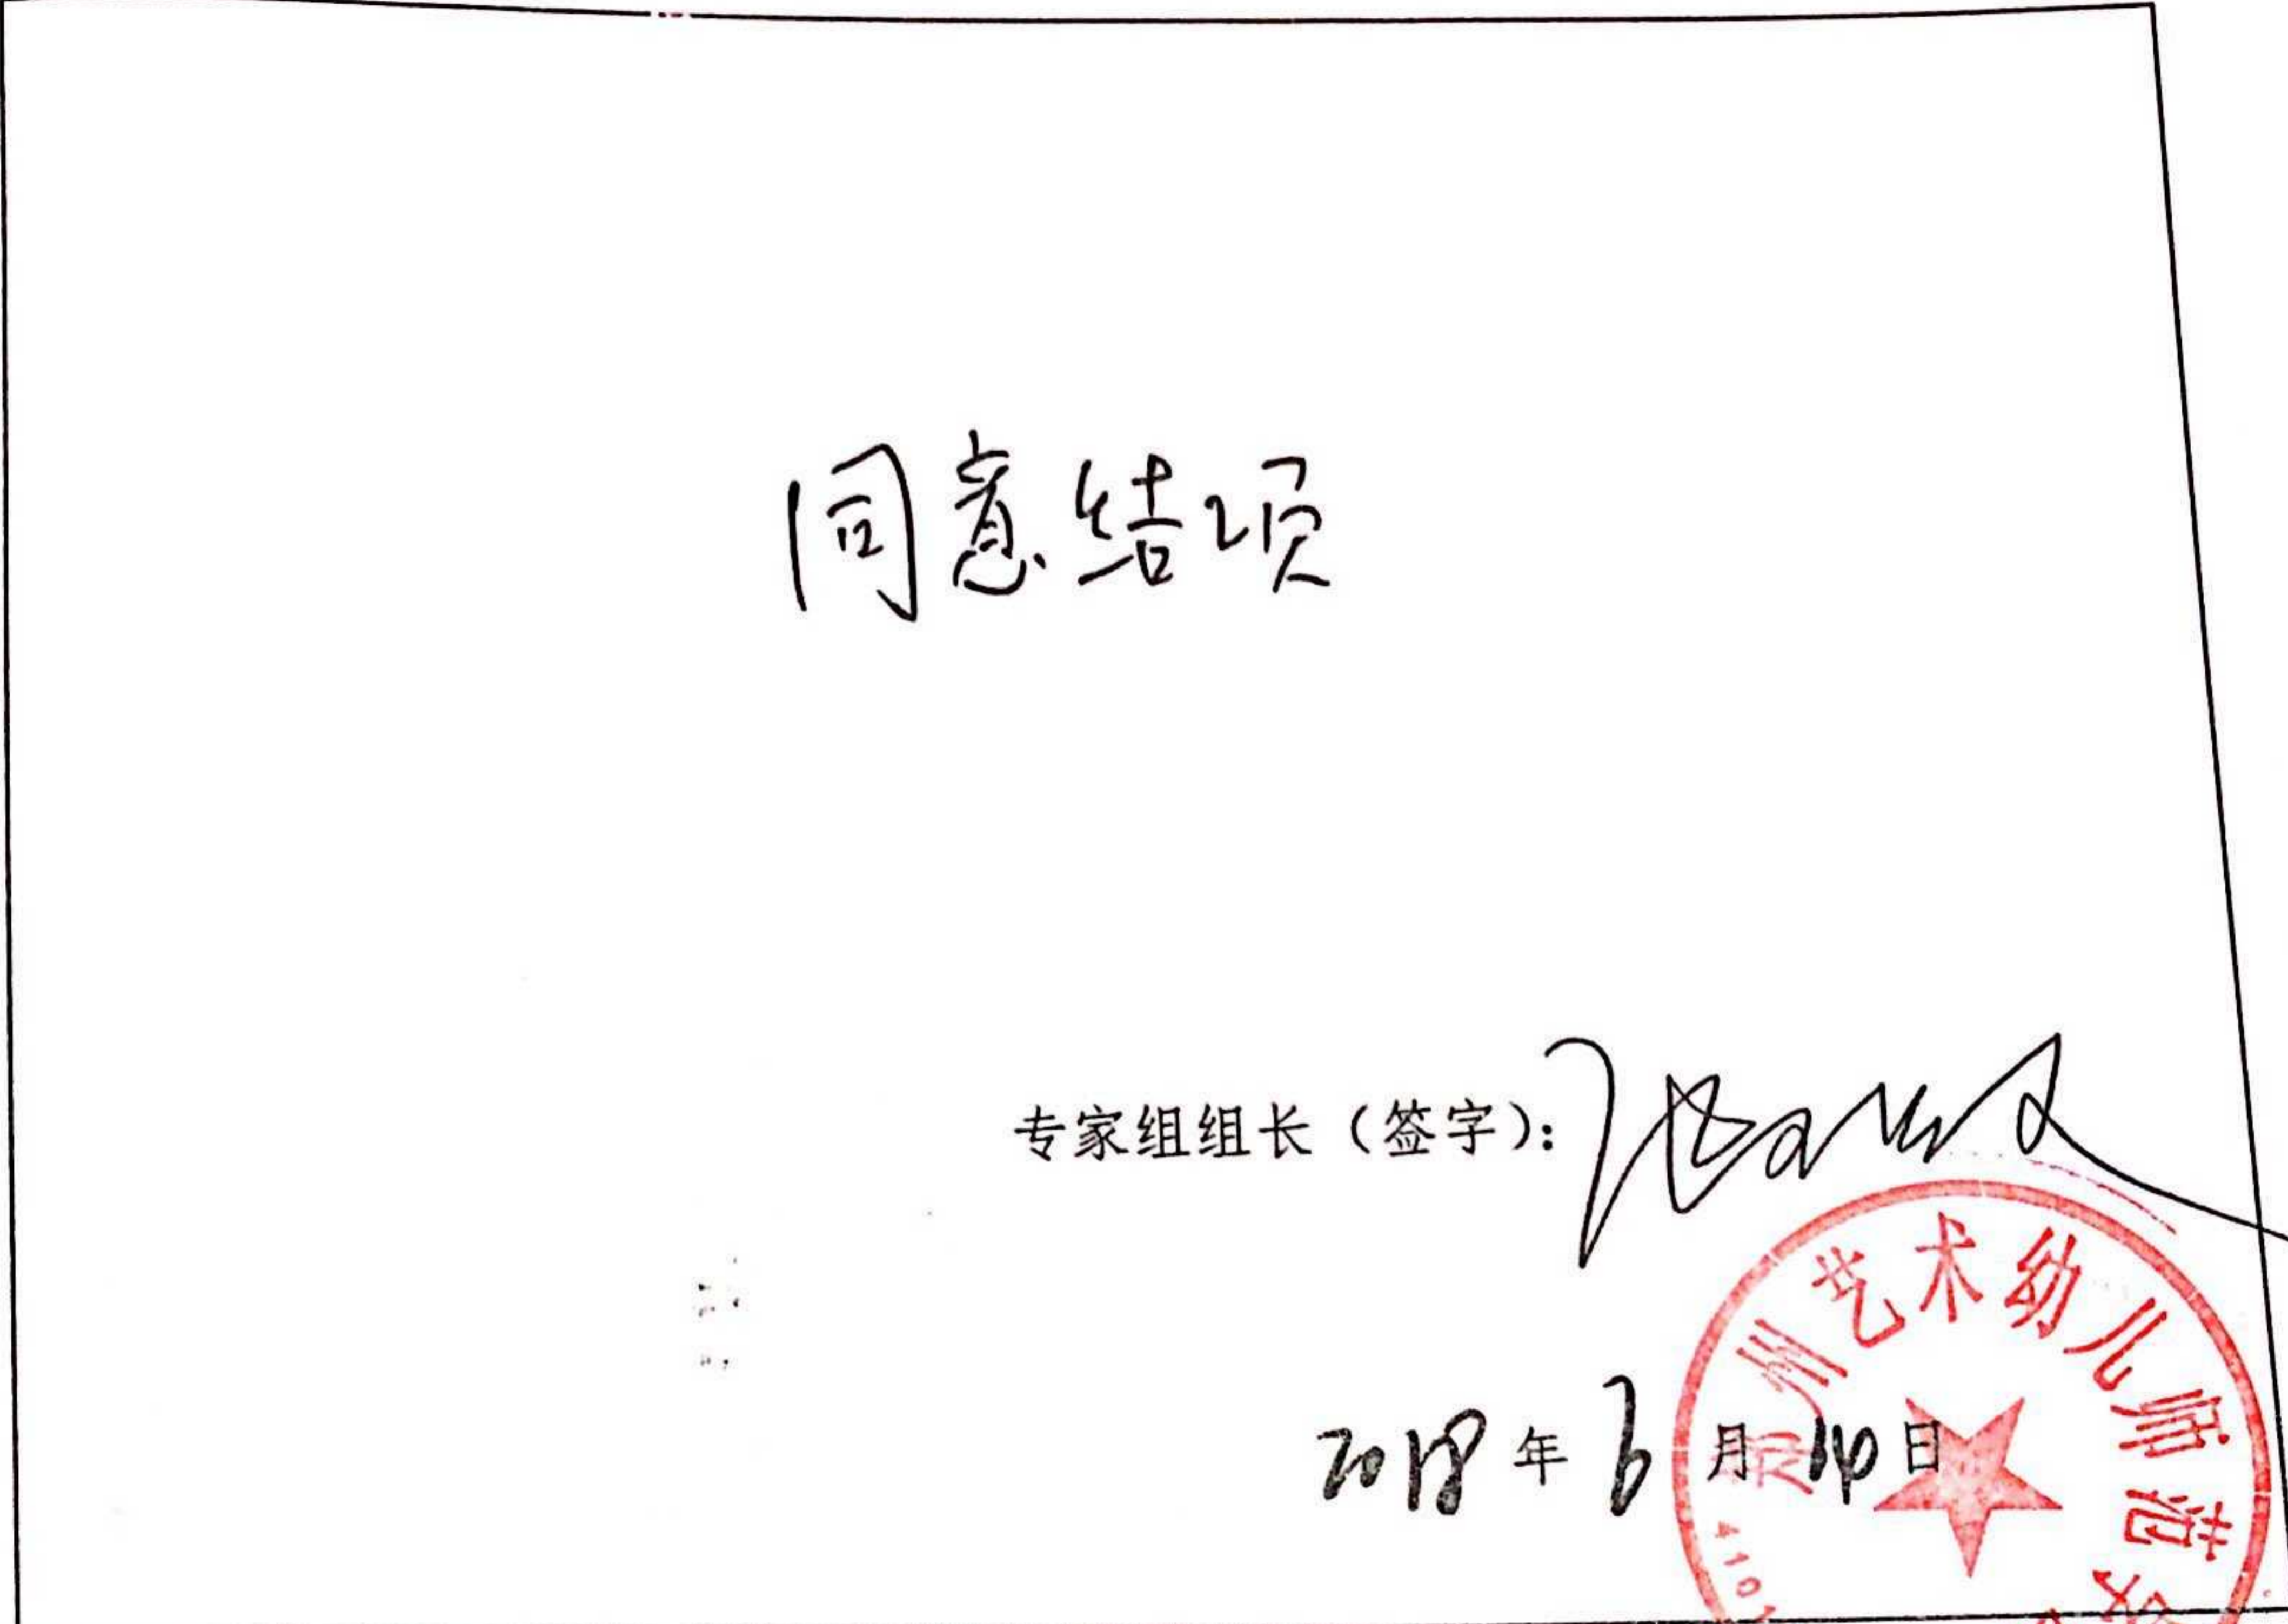 同意结项
专家组组长（签字）：
2018年6月14日
州艺术幼儿师范
4101